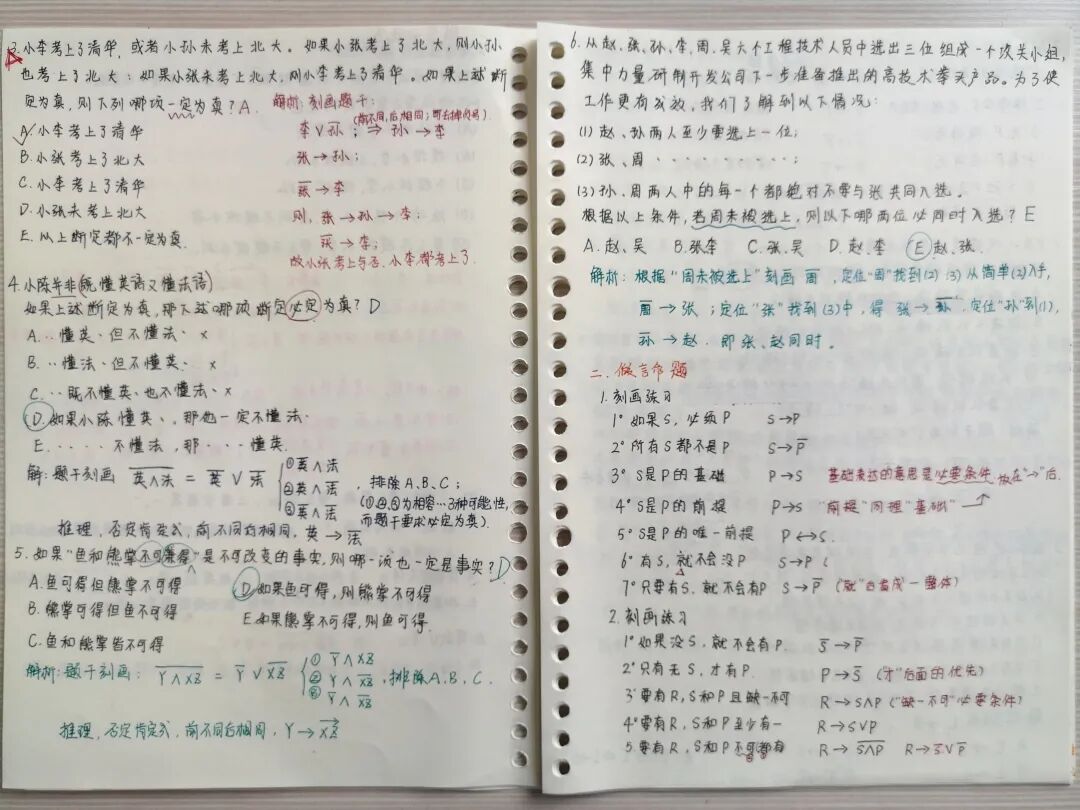 3.小李考上了清华，或者小孙未考上北大。如果小张考上了北大，则小孙
也考上了北大；如果小张未考上北大，则小李考上了清华。如果上述断
定为真，则下列哪项一定为真？A.
解析：刻画题干：
(前不同，后相同；可去掉前号)
A.小李考上了清华
李∨孙̅；⇒ 孙→李
B.小张考上了北大
张→孙；
C.小李考上了清华
张̅→李
D.小张未考上北大
则，张→孙→李；
E.以上断定都不一定为真.
张̅→李；
故小张考上与否，小李都考上了.
4.小陈并非(既懂英语又懂法语)
如果上述断定为真，那下述哪项断定必定为真？D
A.‥懂英、但不懂法、 ×
B.‥懂法、但不懂英、 ×
C.‥既不懂英、也不懂法、×
D.如果小陈懂英、，那他一定不懂法、
E.‥‥不懂法，那‥‥懂英.
解：题干刻画 英∧法̅ = 英̅∨法̅
①英∧法̅
②英̅∧法
③英̅∧法̅
，排除A、B、C；
(①②③为相容…3种可能性，
而题干要求必定为真).
推理，否定肯定式，前不同后相同，英→法̅
5.如果“鱼和熊掌不可兼得”是不可改变的事实，则哪一项也一定是事实？D
A.鱼可得但熊掌不可得
D.如果鱼可得，则熊掌不可得
B.熊掌可得但鱼不可得
E.如果熊掌不可得，则鱼可得
C.鱼和熊掌皆不可得
解析：题干刻画：Y∧XZ̅ = Y̅∨XZ̅
① Y̅∧XZ
② Y∧XZ̅
③ Y̅∧XZ̅
，排除A、B、C.
推理，否定肯定式，前不同后相同，Y→XZ̅
6.从赵、张、孙、李、周、吴六个工程技术人员中选出三位组成一个攻关小组，
集中力量研制开发公司下一步准备推出的高技术拳头产品。为了使
工作更有成效，我们了解到以下情况：
(1) 赵、孙两人至少要选上一位；
(2) 张、周‥‥‥‥‥‥；
(3) 孙、周两人中的每一个都绝对不要与张共同入选.
根据以上条件，若周未被选上，则以下哪两位必同时入选？E
A.赵、吴 B.张李 C.张、吴 D.赵、李 E.赵、张.
解析：根据“周未被选上”刻画 周̅，定位“周”找到(2)、(3)从简单(2)入手，
周̅→张；定位“张”找到(3)中，得 张→孙̅，定位“孙”到(1)，
孙̅→赵 . 即张、赵同时。
二.假言命题
1.刻画练习
1° 如果S，必须P S→P
2° 所有S都不是P S→P̅
3° S是P的基础 P→S 基础表达的意思是必要条件 放在“→”后.
4° S是P的前提 P→S “前提”同理“基础”
5° S是P的唯一前提 P↔S.
6° 有S，就不会没P S→P
7° 只要有S，就不会有P S→P̅ (“就”后看成一整体)
2.刻画练习
1° 如果没S，就不会有P. S̅→P̅
2° 只有无S，才有P. P→S̅ (“才”后面的优先)
3° 要有R，S和P且缺一不可 R→S∧P (“缺一不可”必要条件)
4° 要有R，S和P至少有一 R→S∨P
5. 要有R，S和P不可都有 R→S∧P̅ R→S̅∨P̅